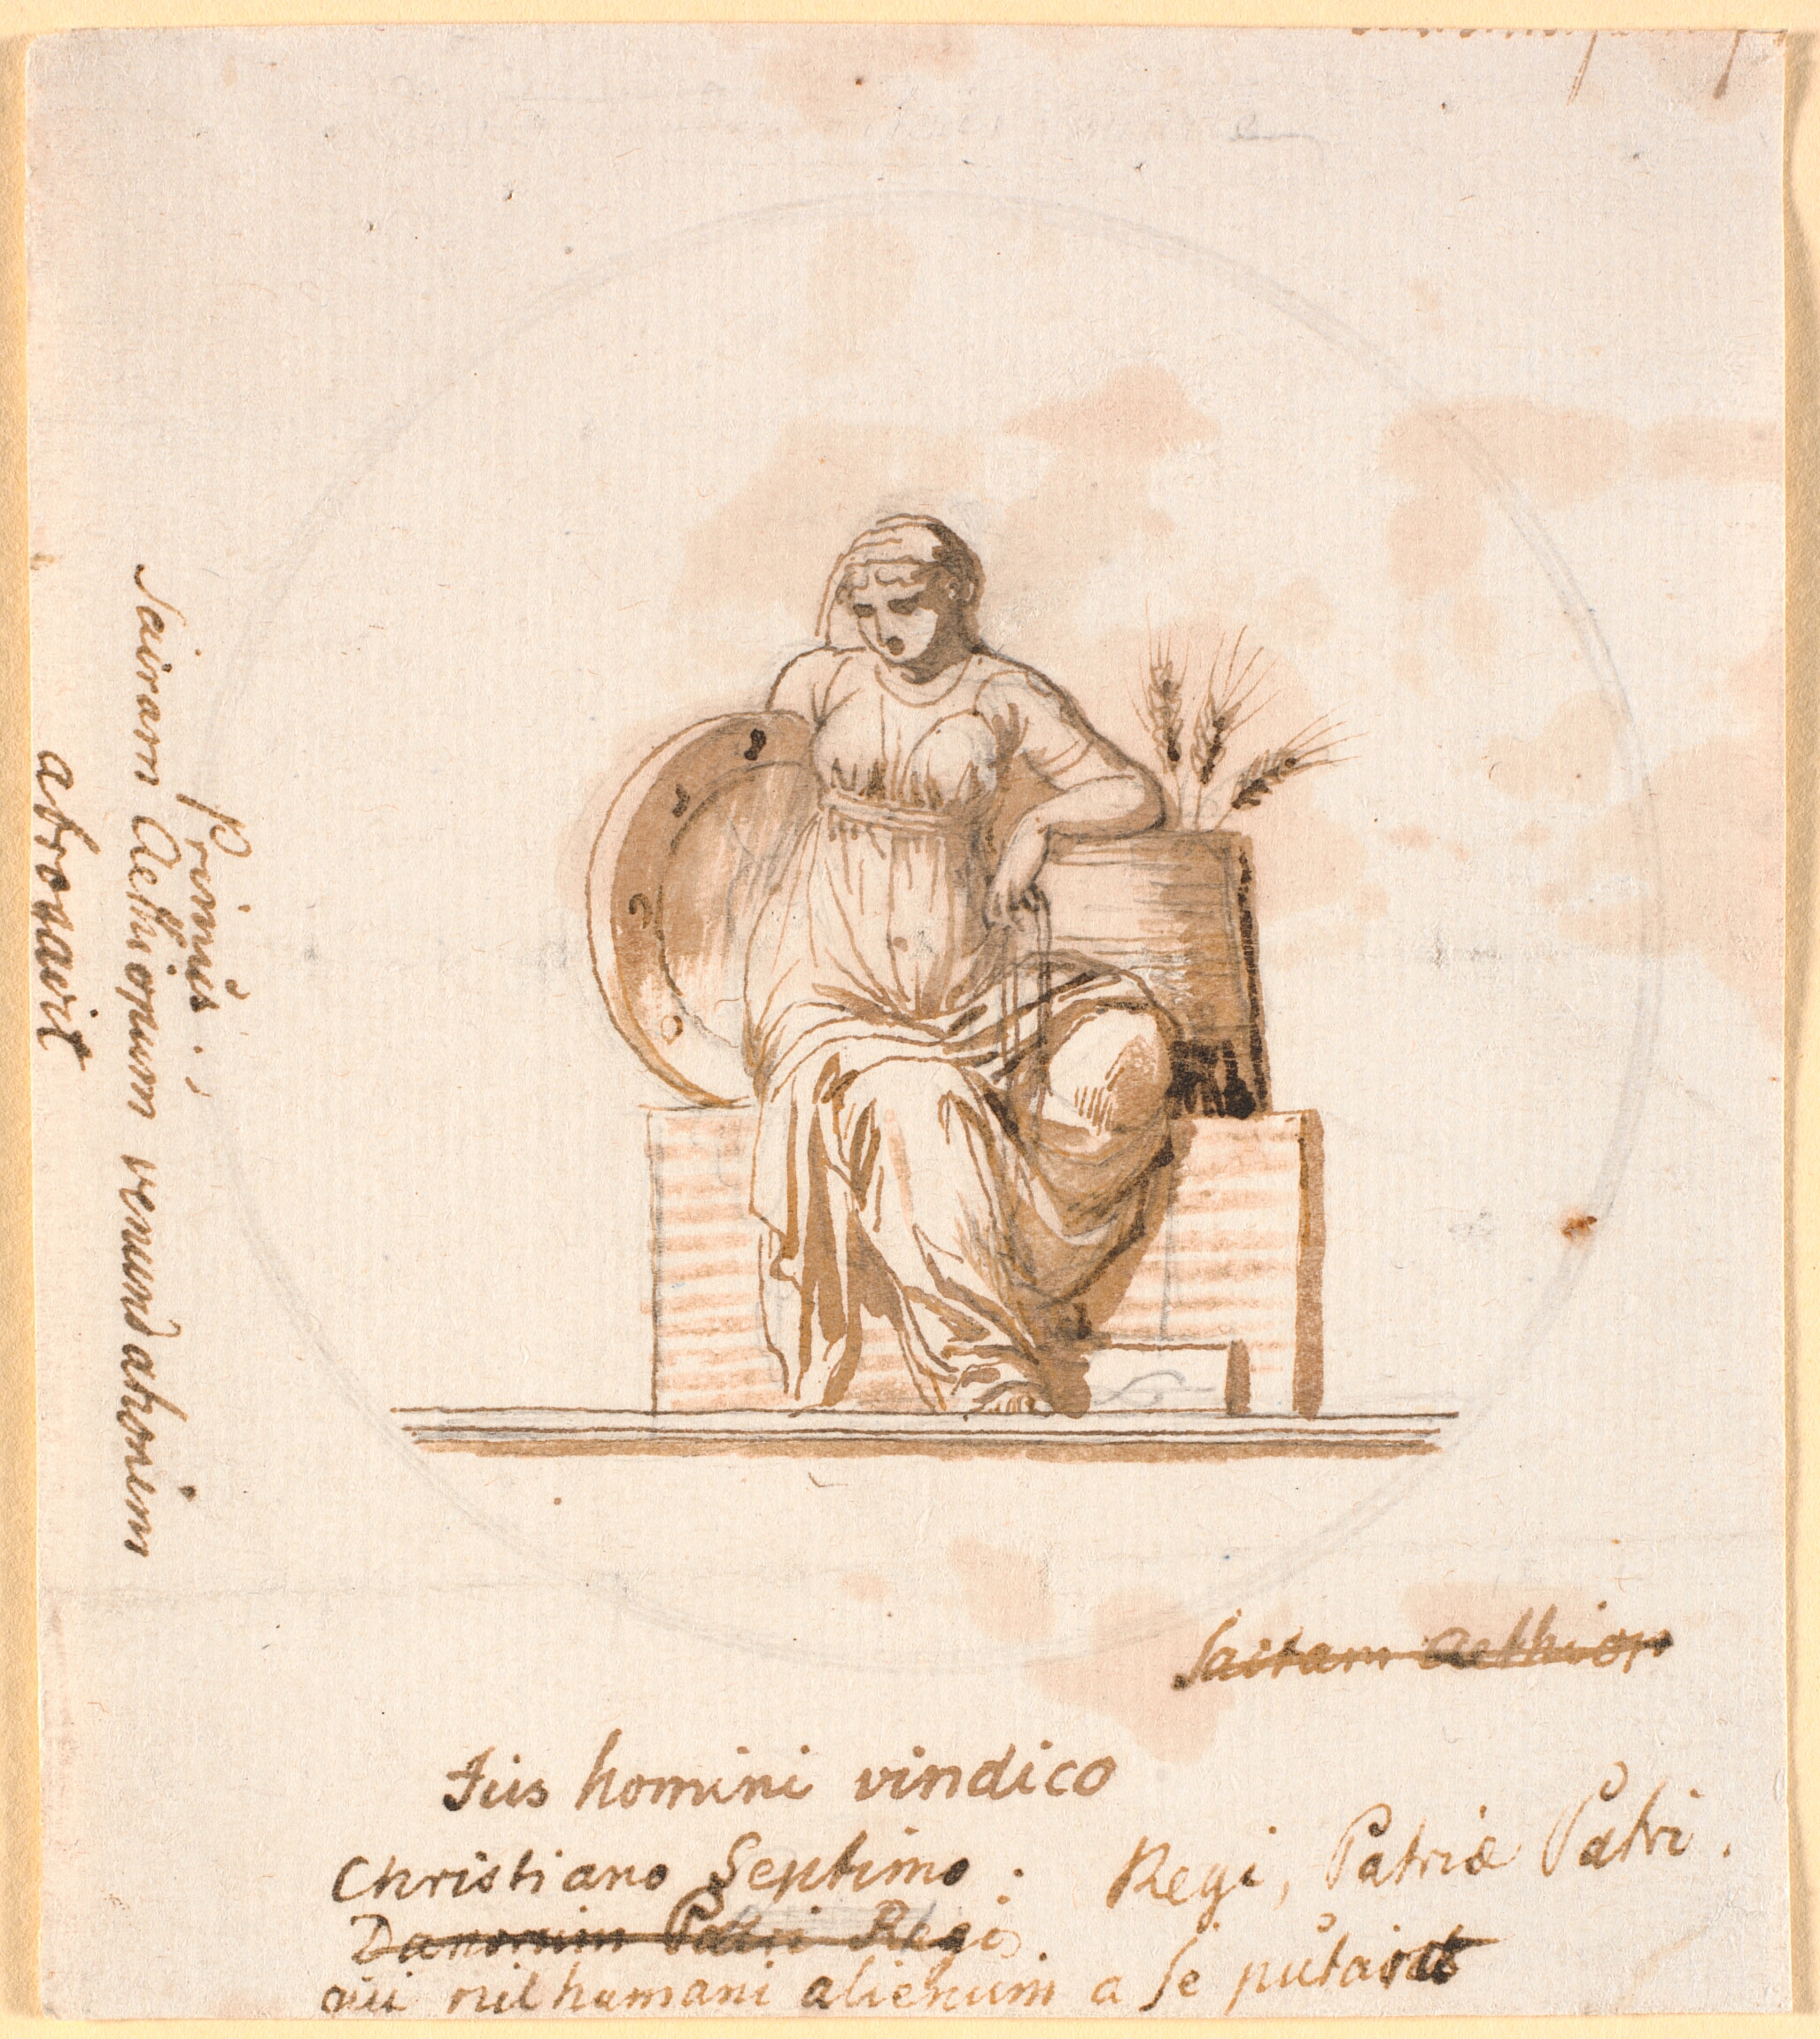 Primus
Sairam Aethiopum venundationem
abrogavit
Sairam Aethiop
Jus homini vindico
Christiano Septimo : Regi, Patriæ Patri .
Danorum Patri Regis .
qui nil humani alienum a se putavit